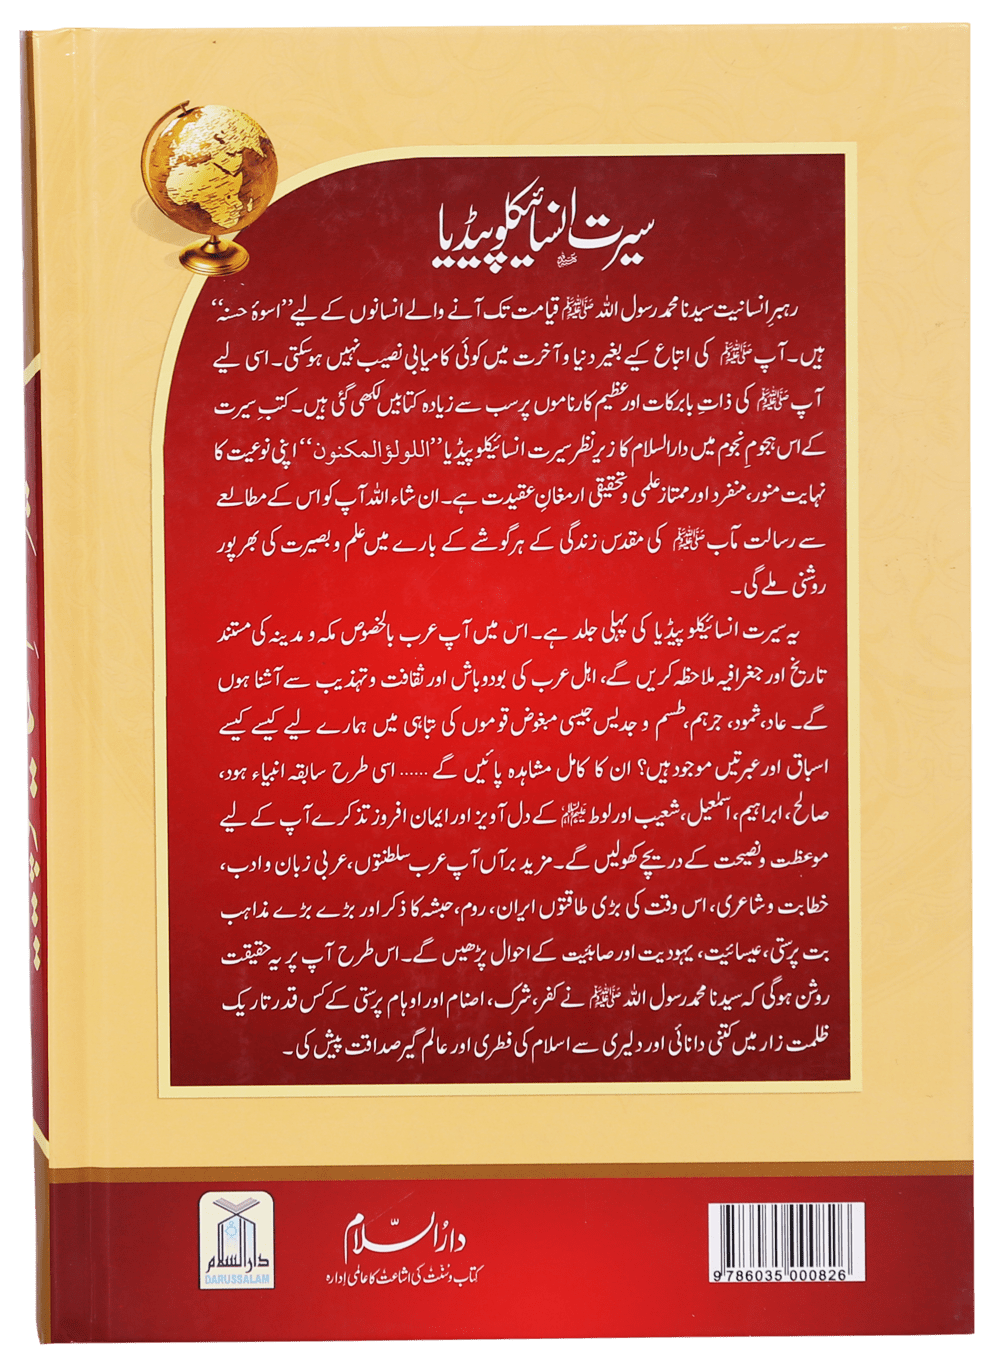 سیرت انسائیکلوپیڈیا
ﷺ
رہبرِ انسانیت سیدنا محمد رسول اللہ ﷺ قیامت تک آنے والے انسانوں کے لیے ”اسوۂ حسنہ“
ہیں۔ آپ ﷺ کی اتباع کیے بغیر دنیا و آخرت میں کوئی کامیابی نصیب نہیں ہوسکتی۔ اسی لیے
آپ ﷺ کی ذاتِ بابرکات اور عظیم کارناموں پر سب سے زیادہ کتابیں لکھی گئی ہیں۔ کتبِ سیرت
کے اس ہجومِ نجوم میں دارالسلام کا زیرِ نظر سیرت انسائیکلوپیڈیا ”اللولؤ المکنون“ اپنی نوعیت کا
نہایت منور، منفرد اور ممتاز علمی و تحقیقی ارمغانِ عقیدت ہے۔ ان شاء اللہ آپ کو اس کے مطالعے
سے رسالت مآب ﷺ کی مقدس زندگی کے ہر گوشے کے بارے میں علم و بصیرت کی بھرپور
روشنی ملے گی۔
یہ سیرت انسائیکلوپیڈیا کی پہلی جلد ہے۔ اس میں آپ عرب بالخصوص مکہ و مدینہ کی مستند
تاریخ اور جغرافیہ ملاحظہ کریں گے، اہل عرب کی بودوباش اور ثقافت و تہذیب سے آشنا ہوں
گے۔ عاد، ثمود، جرہم، طسم و جدیس جیسی مبغوض قوموں کی تباہی میں ہمارے لیے کیسے کیسے
اسباق اور عبرتیں موجود ہیں؟ ان کا کامل مشاہدہ پائیں گے ...... اسی طرح سابقہ انبیاء ہود،
صالح، ابراہیم، اسمٰعیل، شعیب اور لوط علیہم السلام کے دل آویز اور ایمان افروز تذکرے آپ کے لیے
موعظت و نصیحت کے دریچے کھولیں گے۔ مزید برآں آپ عرب سلطنتوں، عربی زبان و ادب،
خطابت و شاعری، اس وقت کی بڑی طاقتوں ایران، روم، حبشہ کا ذکر اور بڑے بڑے مذاہب
بت پرستی، عیسائیت، یہودیت اور صابئیت کے احوال پڑھیں گے۔ اس طرح آپ پر یہ حقیقت
روشن ہوگی کہ سیدنا محمد رسول اللہ ﷺ نے کفر، شرک، اصنام اور اوہام پرستی کے کس قدر تاریک
ظلمت زار میں کتنی دانائی اور دلیری سے اسلام کی فطری اور عالم گیر صداقت پیش کی۔
دارالسلام
DARUSSALAM
دارُ السّلام
کتاب و سنت کی اشاعت کا عالمی ادارہ
9 786035 000826